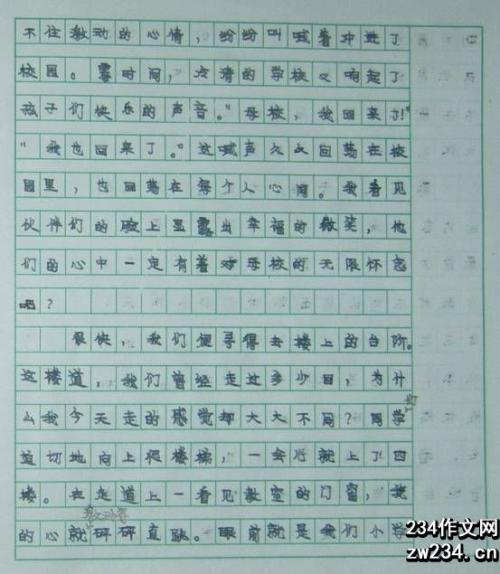 不住激动的心情，纷纷叫喊着冲进了
校园。霎时间，冷清的学校又响起了
孩子们快乐的声音。"母校，我回来了！"
"我也回来了。"这喊声久久回荡在校
园里，也回荡在每个人心间。我看见
伙伴们的脸上显露出幸福的微笑，他
们的心中一定有着对母校的无限怀念
吧？
很快，我们便寻得去楼上的台阶。
这楼道，我们曾经走过多少回，为什
么我今天走的感觉却大大不同？同学
切地向上爬楼梯，一会儿就上了四
楼。在走道上一看见教室的门窗，我
的心就砰砰直跳。眼前就是我们小学
234作文网
zw234.cn